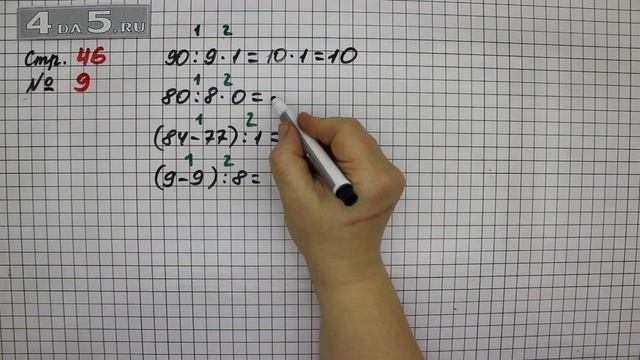 4 DA 5.RU
Стр. 46
№ 9
1 2
90 : 9 · 1 = 10 · 1 = 10
1 2
80 : 8 · 0 =
1 2
(84 - 77) : 1 =
1 2
(9 - 9) : 8 =